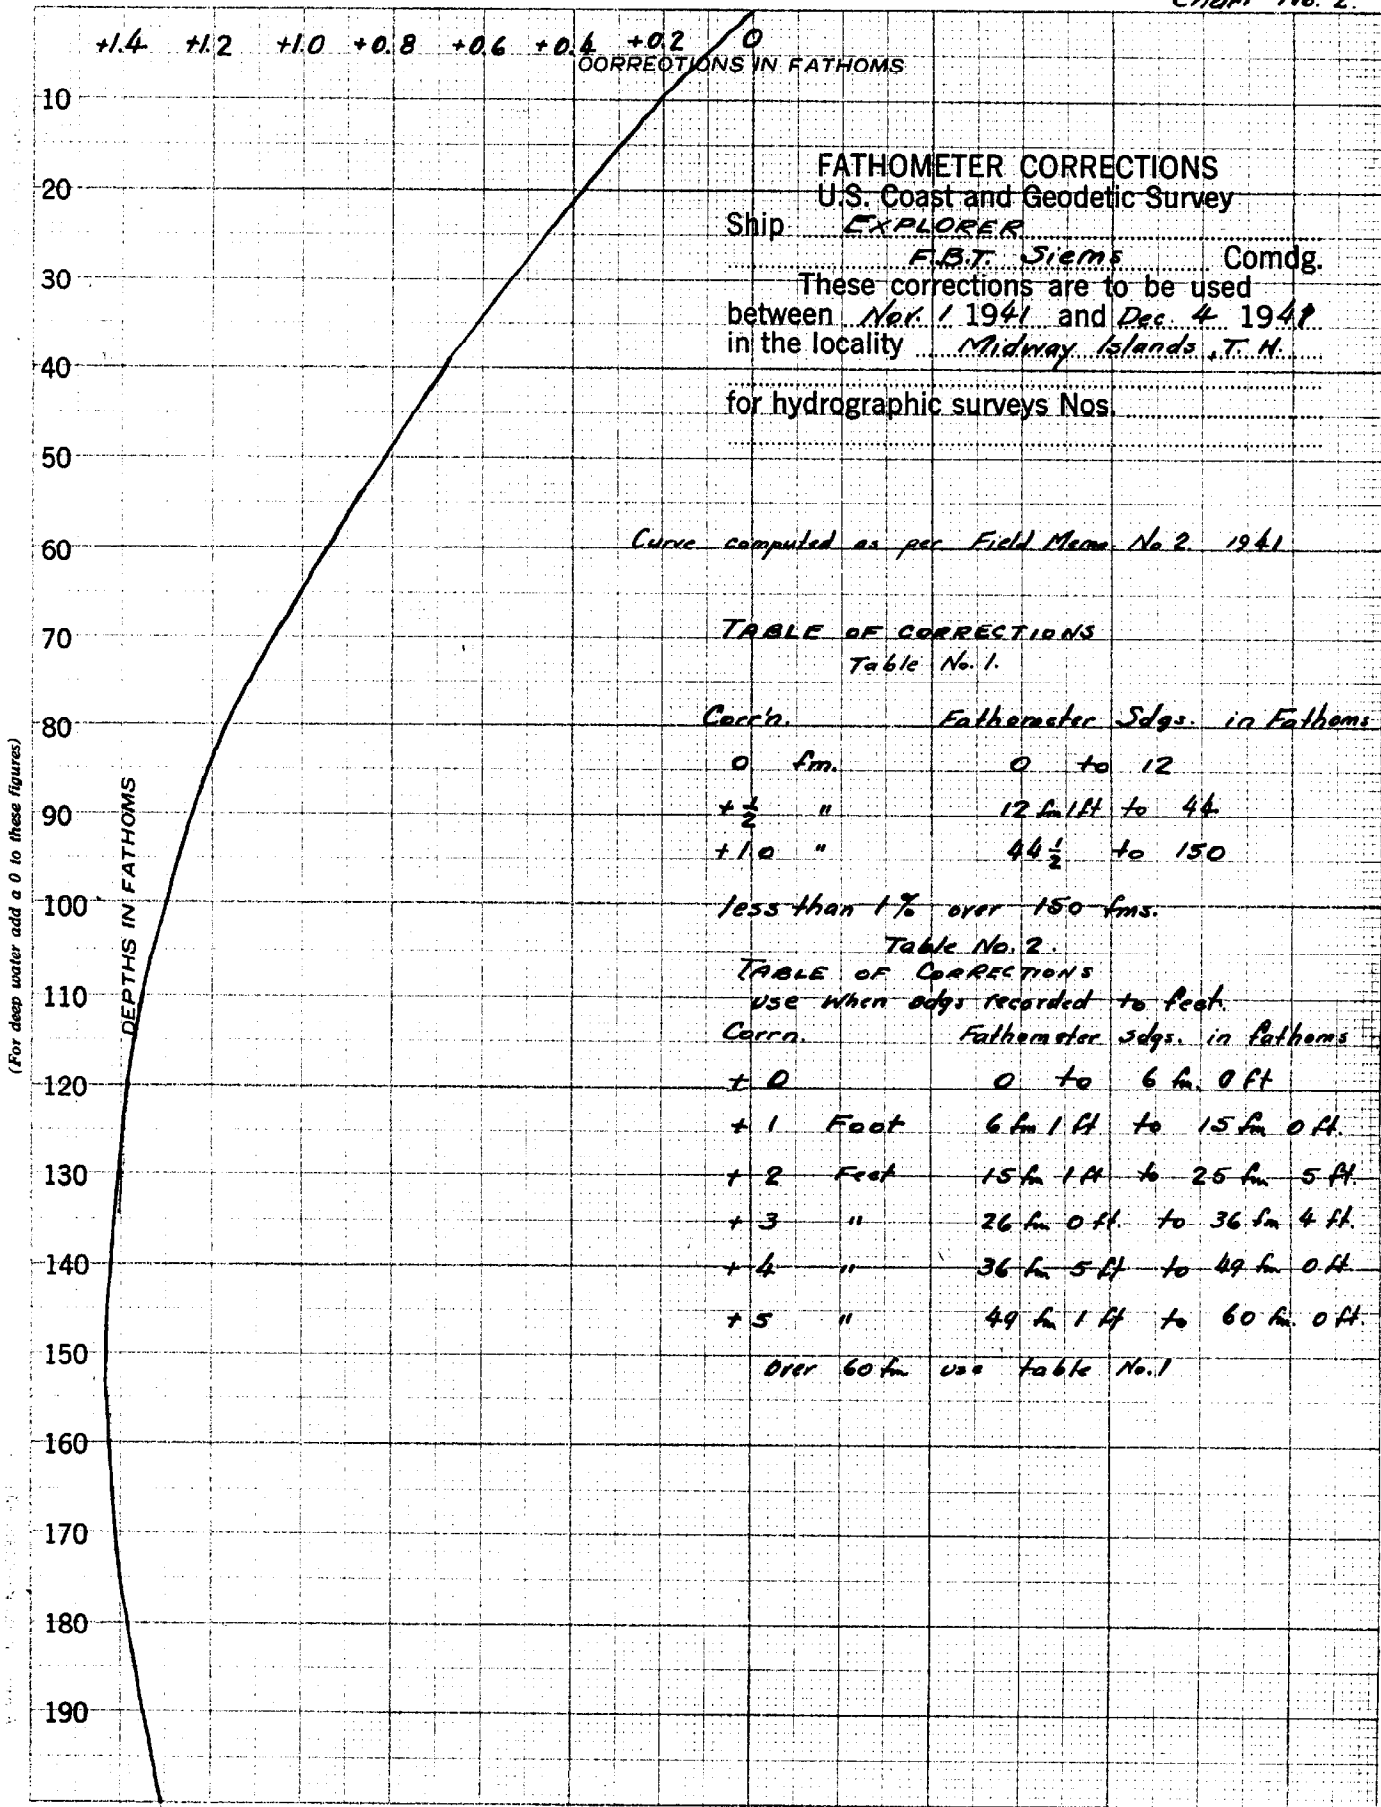 Chart No. 2.
+1.4 +1.2 +1.0 +0.8 +0.6 +0.4 +0.2 0
CORRECTIONS IN FATHOMS
10
20
30
40
50
60
70
80
90
100
110
120
130
140
150
160
170
180
190
DEPTHS IN FATHOMS
(For deep water add a 0 to these figures)
FATHOMETER CORRECTIONS
U.S. Coast and Geodetic Survey
Ship EXPLORER
F.B.T. Siems Comdg.
These corrections are to be used
between Nov. 1 1941 and Dec 4 1941
in the locality Midway Islands, T. H.
for hydrographic surveys Nos.
Curve computed as per Field Memo. No 2. 1941
TABLE OF CORRECTIONS
Table No. 1.
Corr'n. Fathometer Sdgs. in Fathoms
0 fm. 0 to 12
+ ½ " 12 fm 1 ft to 44
+ 1.0 " 44 ½ to 150
less than 1% over 150 fms.
Table No. 2.
TABLE OF CORRECTIONS
use when sdgs recorded to feet.
Corrn. Fathometer sdgs. in fathoms
+ 0 0 to 6 fm. 0 ft
+ 1 Foot 6 fm 1 ft to 15 fm 0 ft.
+ 2 Feet 15 fm 1 ft to 25 fm 5 ft.
+ 3 " 26 fm 0 ft. to 36 fm 4 ft.
+ 4 " 36 fm 5 ft to 49 fm 0 ft.
+ 5 " 49 fm 1 ft to 60 fm. 0 ft.
Over 60 fm use table No. 1